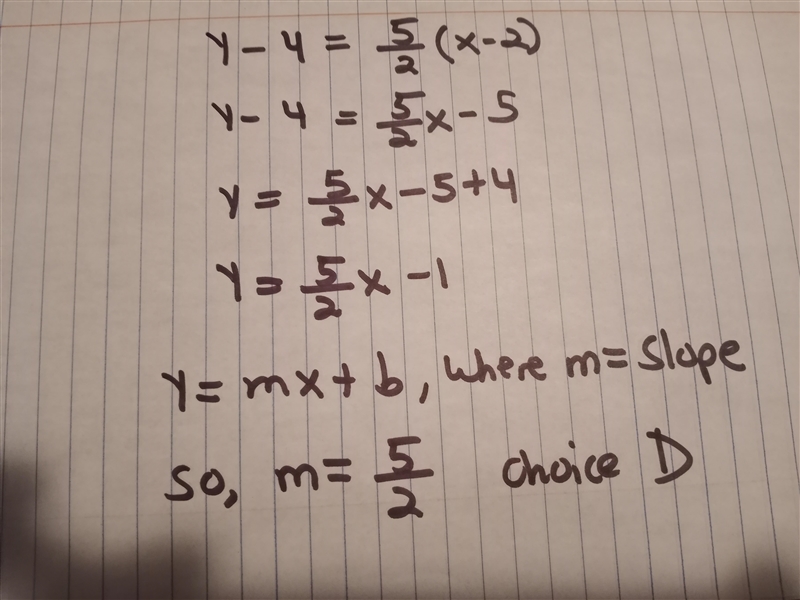 Y - 4 = 5/2 (x - 2)
Y - 4 = 5/2 x - 5
Y = 5/2 x - 5 + 4
Y = 5/2 x - 1
Y = mx + b, where m = slope
so, m = 5/2 choice D